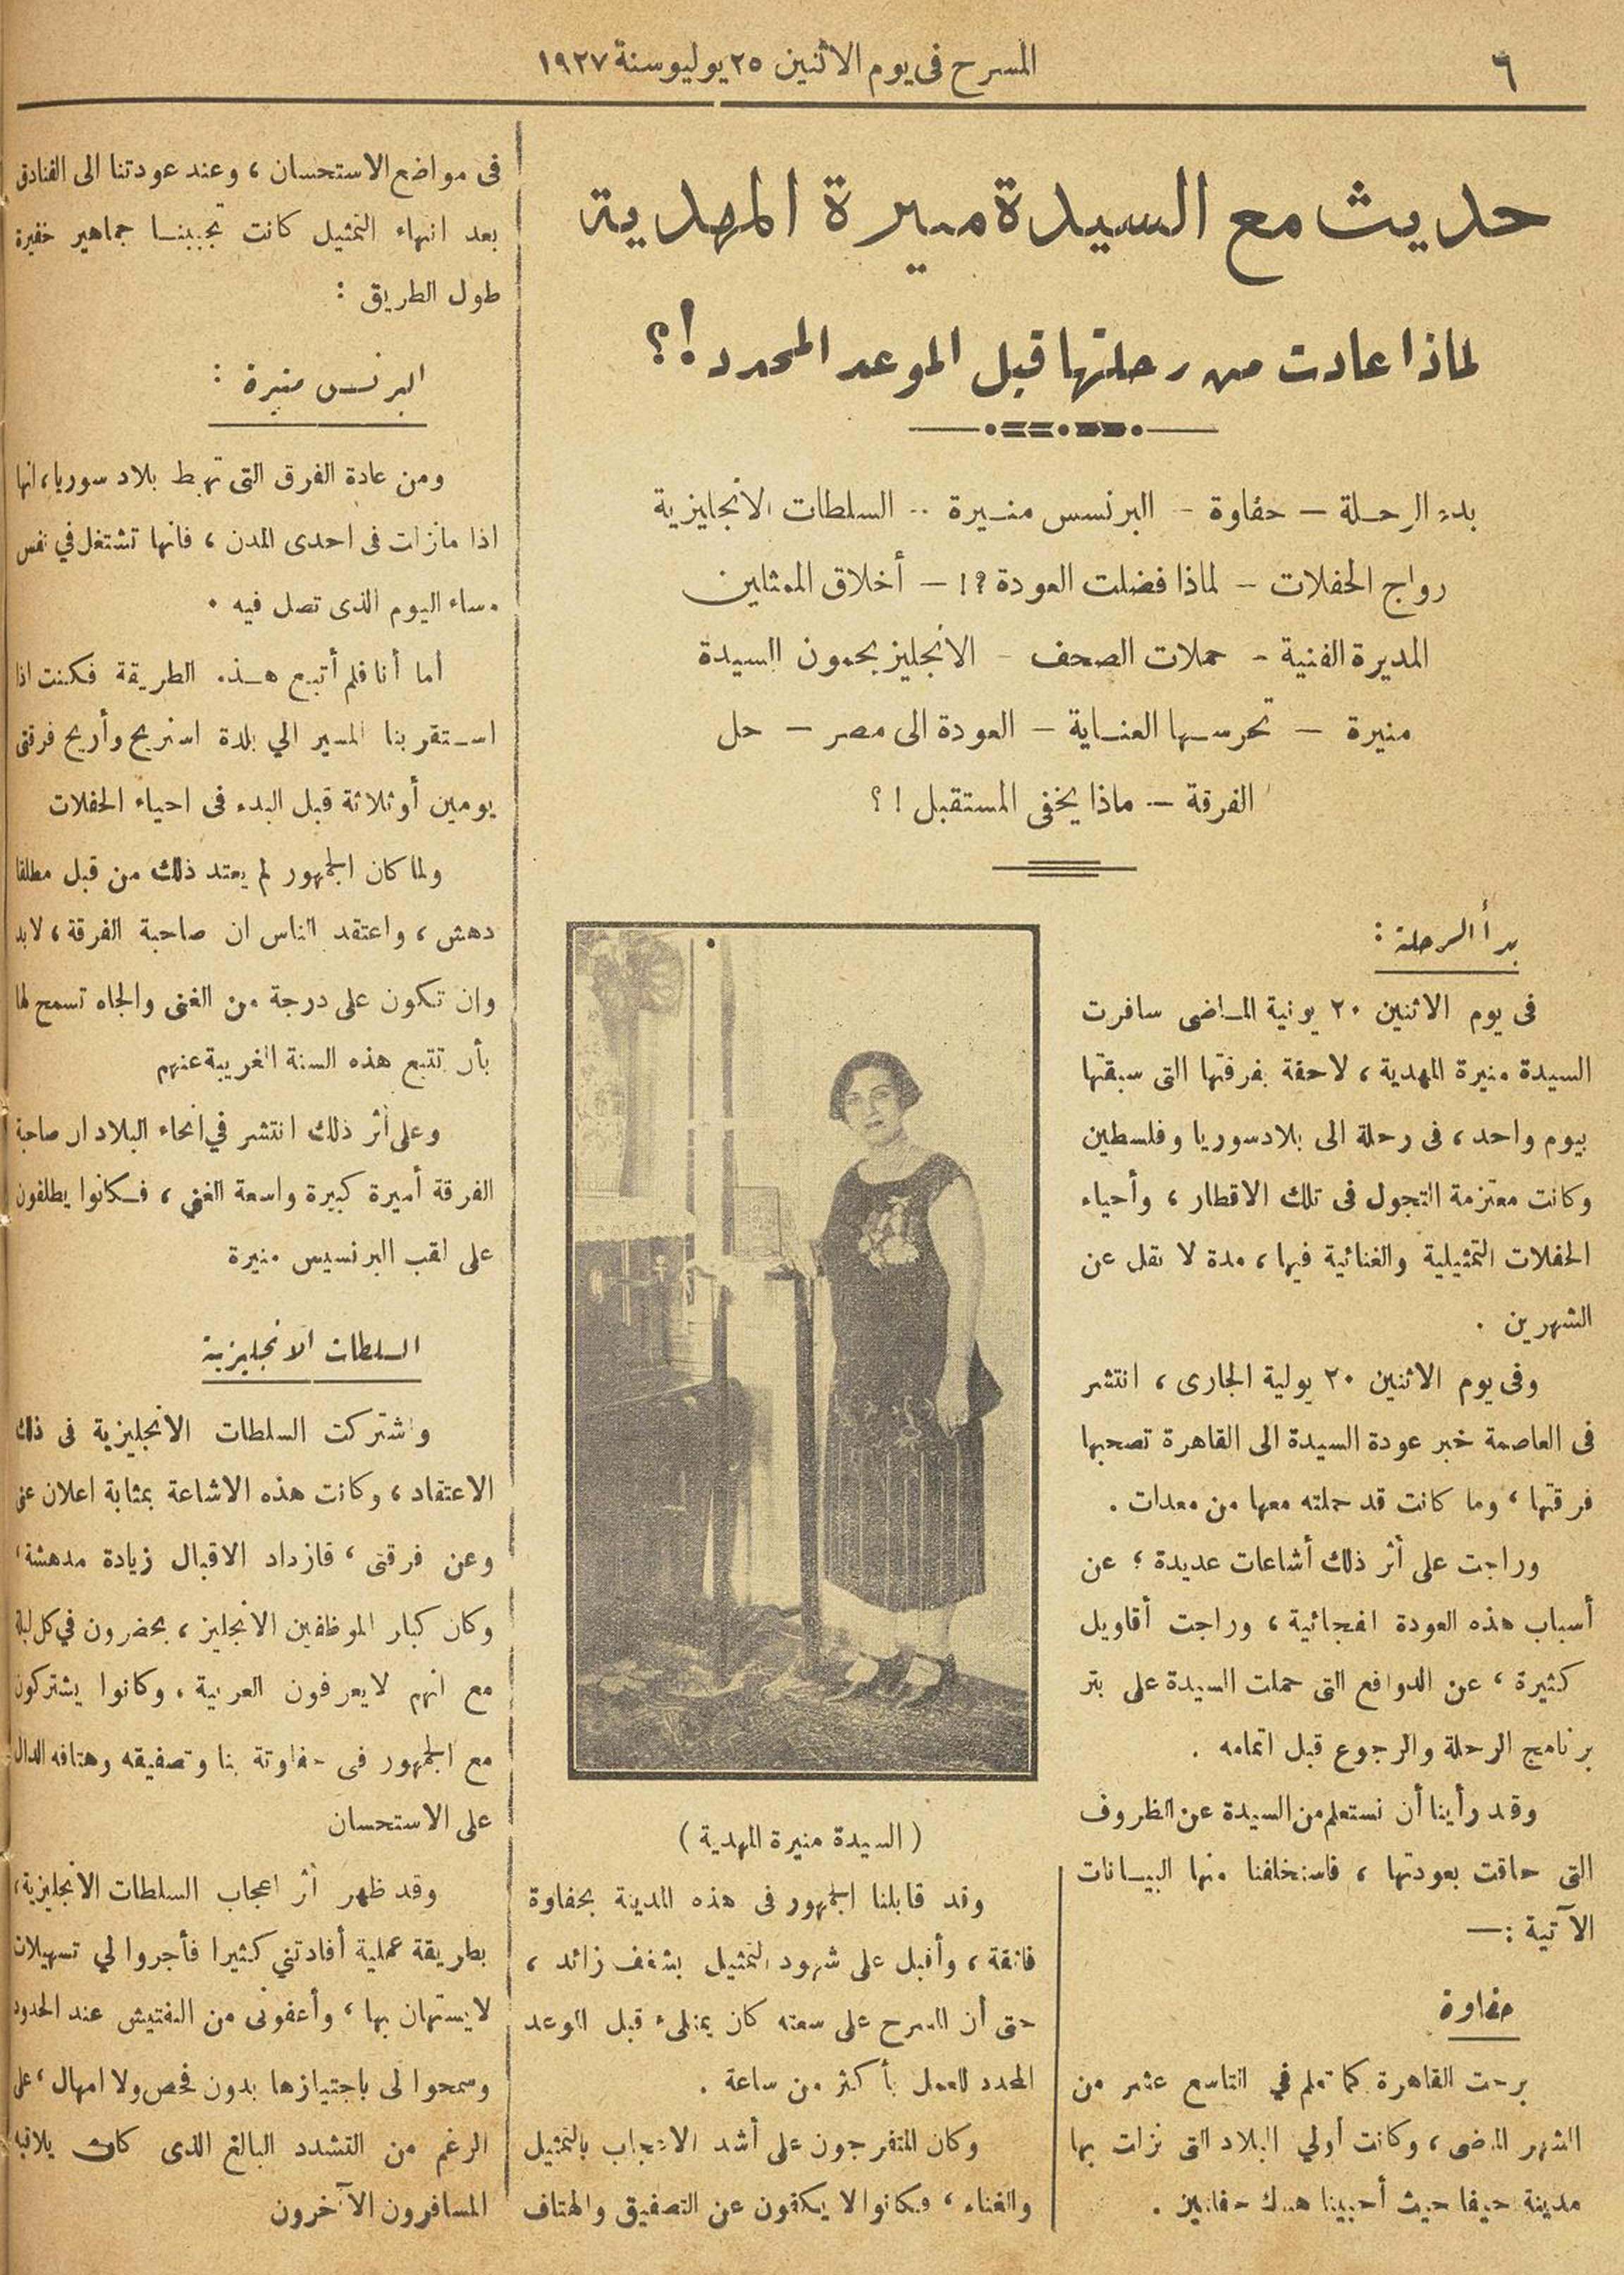 ٦
المسرح فى يوم الاثنين ٢٥ يوليو سنة ١٩٢٧
حديث مع السيدة منيرة المهدية
لماذا عادت من رحلتها قبل الموعد المحدد!؟
بدء الرحلة — حفاوة — البرنسس منيرة .. السلطات الانجليزية
رواج الحفلات — لماذا فضلت العودة ؟! — أخلاق الممثلين
المديرة الفنية — حملات الصحف — الانجليز يحمون السيدة
منيرة — تحرسها العناية — العودة الى مصر — حل
الفرقة — ماذا يخفى المستقبل ! ؟
بدأ الرحلة :
فى يوم الاثنين ٢٠ يونية الماضى سافرت
السيدة منيرة المهدية ، لاحقة بفرقتها التى سبقتها
بيوم واحد ، فى رحلة الى بلاد سوريا وفلسطين
وكانت معتزمة التجول فى تلك الاقطار ، وأحياء
الحفلات التمثيلية والغنائية فيها ، مدة لا تقل عن
الشهرين .
وفى يوم الاثنين ٢٠ يولية الجارى ، انتشر
فى العاصمة خبر عودة السيدة الى القاهرة تصحبها
فرقتها ، وما كانت قد حملته معها من معدات .
وراجت على أثر ذلك أشاعات عديدة ؛ عن
أسباب هذه العودة الفجائية ، وراجت أقاويل
كثيرة ، عن الدوافع التى حملت السيدة على بتر
برنامج الرحلة والرجوع قبل اتمامه .
وقد رأينا أن نستعلم من السيدة عن الظروف
التى حاقت بعودتها ، فاستخلفنا منها البيانات
الآتية :—
حفاوة
برحت القاهرة كما تعلم في التاسع عشر من
الشهر الماضى ، وكانت أولي البلاد التى نزلت بها
مدينة حيفا حيث أحيينا هناك حفلتين .
(السيدة منيرة المهدية)
وقد قابلنا الجمهور فى هذه المدينة بحفاوة
فائقة ، وأقبل على شهود التمثيل بشغف زائد ،
حتى أن المسرح على سعته كان يمتلىء قبل الموعد
المحدد للعمل بأكثر من ساعة .
وكان المتفرجون على أشد الاعجاب بالتمثيل
والغناء ، فكانوا لا يكفون عن التصفيق والهتاف
فى مواضع الاستحسان ، وعند عودتنا الى الفنادق
بعد انتهاء التمثيل كانت تجيبنا جماهير غفيرة
طول الطريق :
البرنسس منيرة :
ومن عادة الفرق التى تهبط بلاد سوريا ، انها
اذا مانزلت فى احدى المدن ، فانها تشتغل في نفس
مساء اليوم الذى تصل فيه .
أما أنا فلم أتبع هذه الطريقة فكنت اذا
استقر بنا المسير الي بلدة استريح وأريح فرقتى
يومين أو ثلاثة قبل البدء فى احياء الحفلات
ولما كان الجمهور لم يعتد ذلك من قبل مطلقا
دهش ، واعتقد الناس ان صاحبة الفرقة ، لابد
وان تكون على درجة من الغنى والجاه تسمح لها
بأن تتبع هذه السنة الغريبة عنهم
وعلى أثر ذلك انتشر في انحاء البلاد ان صاحبة
الفرقة أميرة كبيرة واسعة الغنى ، فكانوا يطلقون
على لقب البرنسيس منيرة
السلطات الانجليزية
واشتركت السلطات الانجليزية فى ذلك
الاعتقاد ، وكانت هذه الاشاعة بمثابة اعلان عنى
وعن فرقتى ، فازداد الاقبال زيادة مدهشة ،
وكان كبار الموظفين الانجليز ، يحضرون في كل ليلة
مع انهم لا يعرفون العربية ، وكانوا يشتركون
مع الجمهور فى حفاوتة بنا وتصفيقه وهتافه الدال
على الاستحسان
وقد ظهر أثر اعجاب السلطات الانجليزية ،
بطريقة عملية أفادتني كثيرا فأجروا لي تسهيلات
لا يستهان بها ، وأعفونى من التفتيش عند الحدود
وسمحوا لى باجتيازها بدون فحص ولا امهال ، على
الرغم من التشدد البالغ الذى كان يلاقيه
المسافرون الآخرون